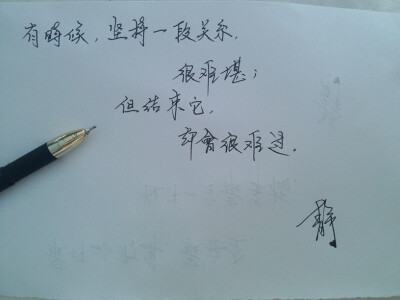 有時候，坚持一段关系，
很难堪；
但结束它，
却會很难过。
静